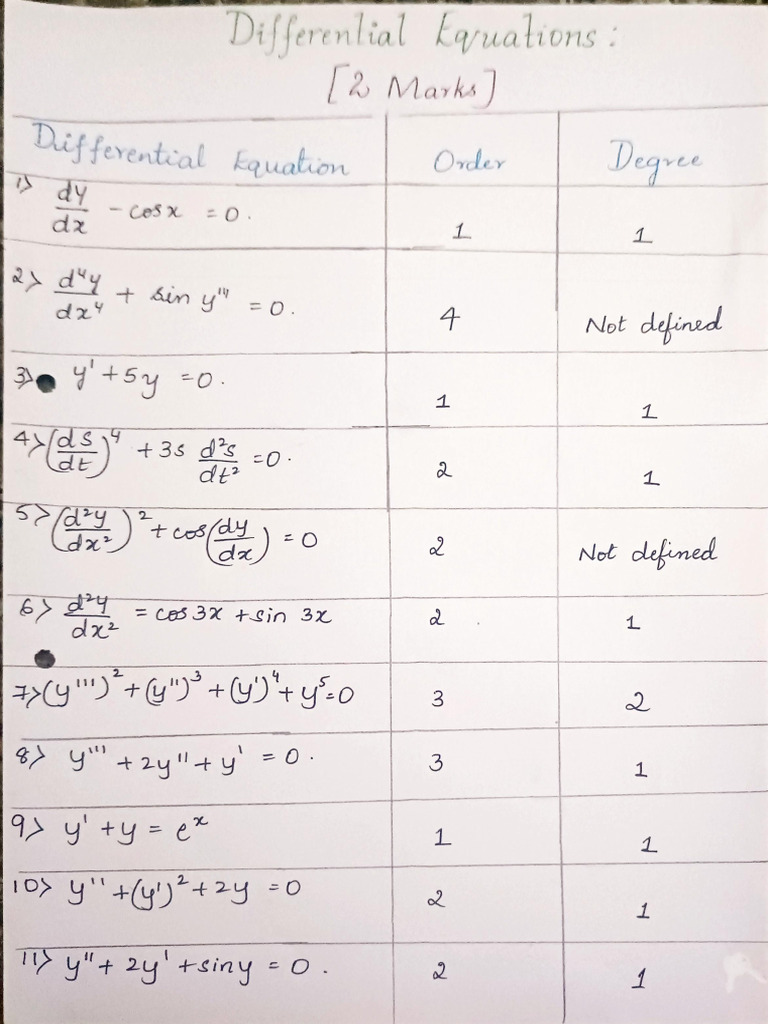 Differential Equations:
[2 Marks]
Differential Equation Order Degree
1) dy/dx - cosx = 0. 1 1
2) d⁴y/dx⁴ + sin y''' = 0. 4 Not defined
3) y' + 5y = 0. 1 1
4) (ds/dt)⁴ + 3s d²s/dt² = 0. 2 1
5) (d²y/dx²)² + cos(dy/dx) = 0 2 Not defined
6) d²y/dx² = cos 3x + sin 3x 2 1
7) (y''')² + (y'')³ + (y')⁴ + y⁵ = 0 3 2
8) y''' + 2y'' + y' = 0. 3 1
9) y' + y = eˣ 1 1
10) y'' + (y')² + 2y = 0 2 1
11) y'' + 2y' + siny = 0. 2 1